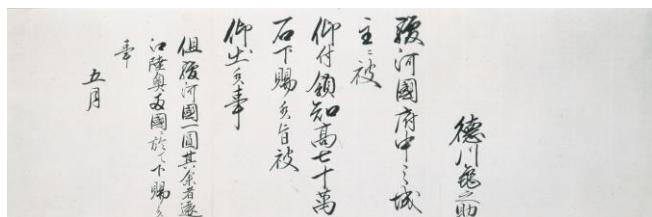 德川龜之助
駿河國府中之城
主ニ被
仰付領知高七十萬
石下賜候旨被
仰出候事
但駿河國一圓其余者遠
江陸奥両國ニ於て下賜候
事
五月